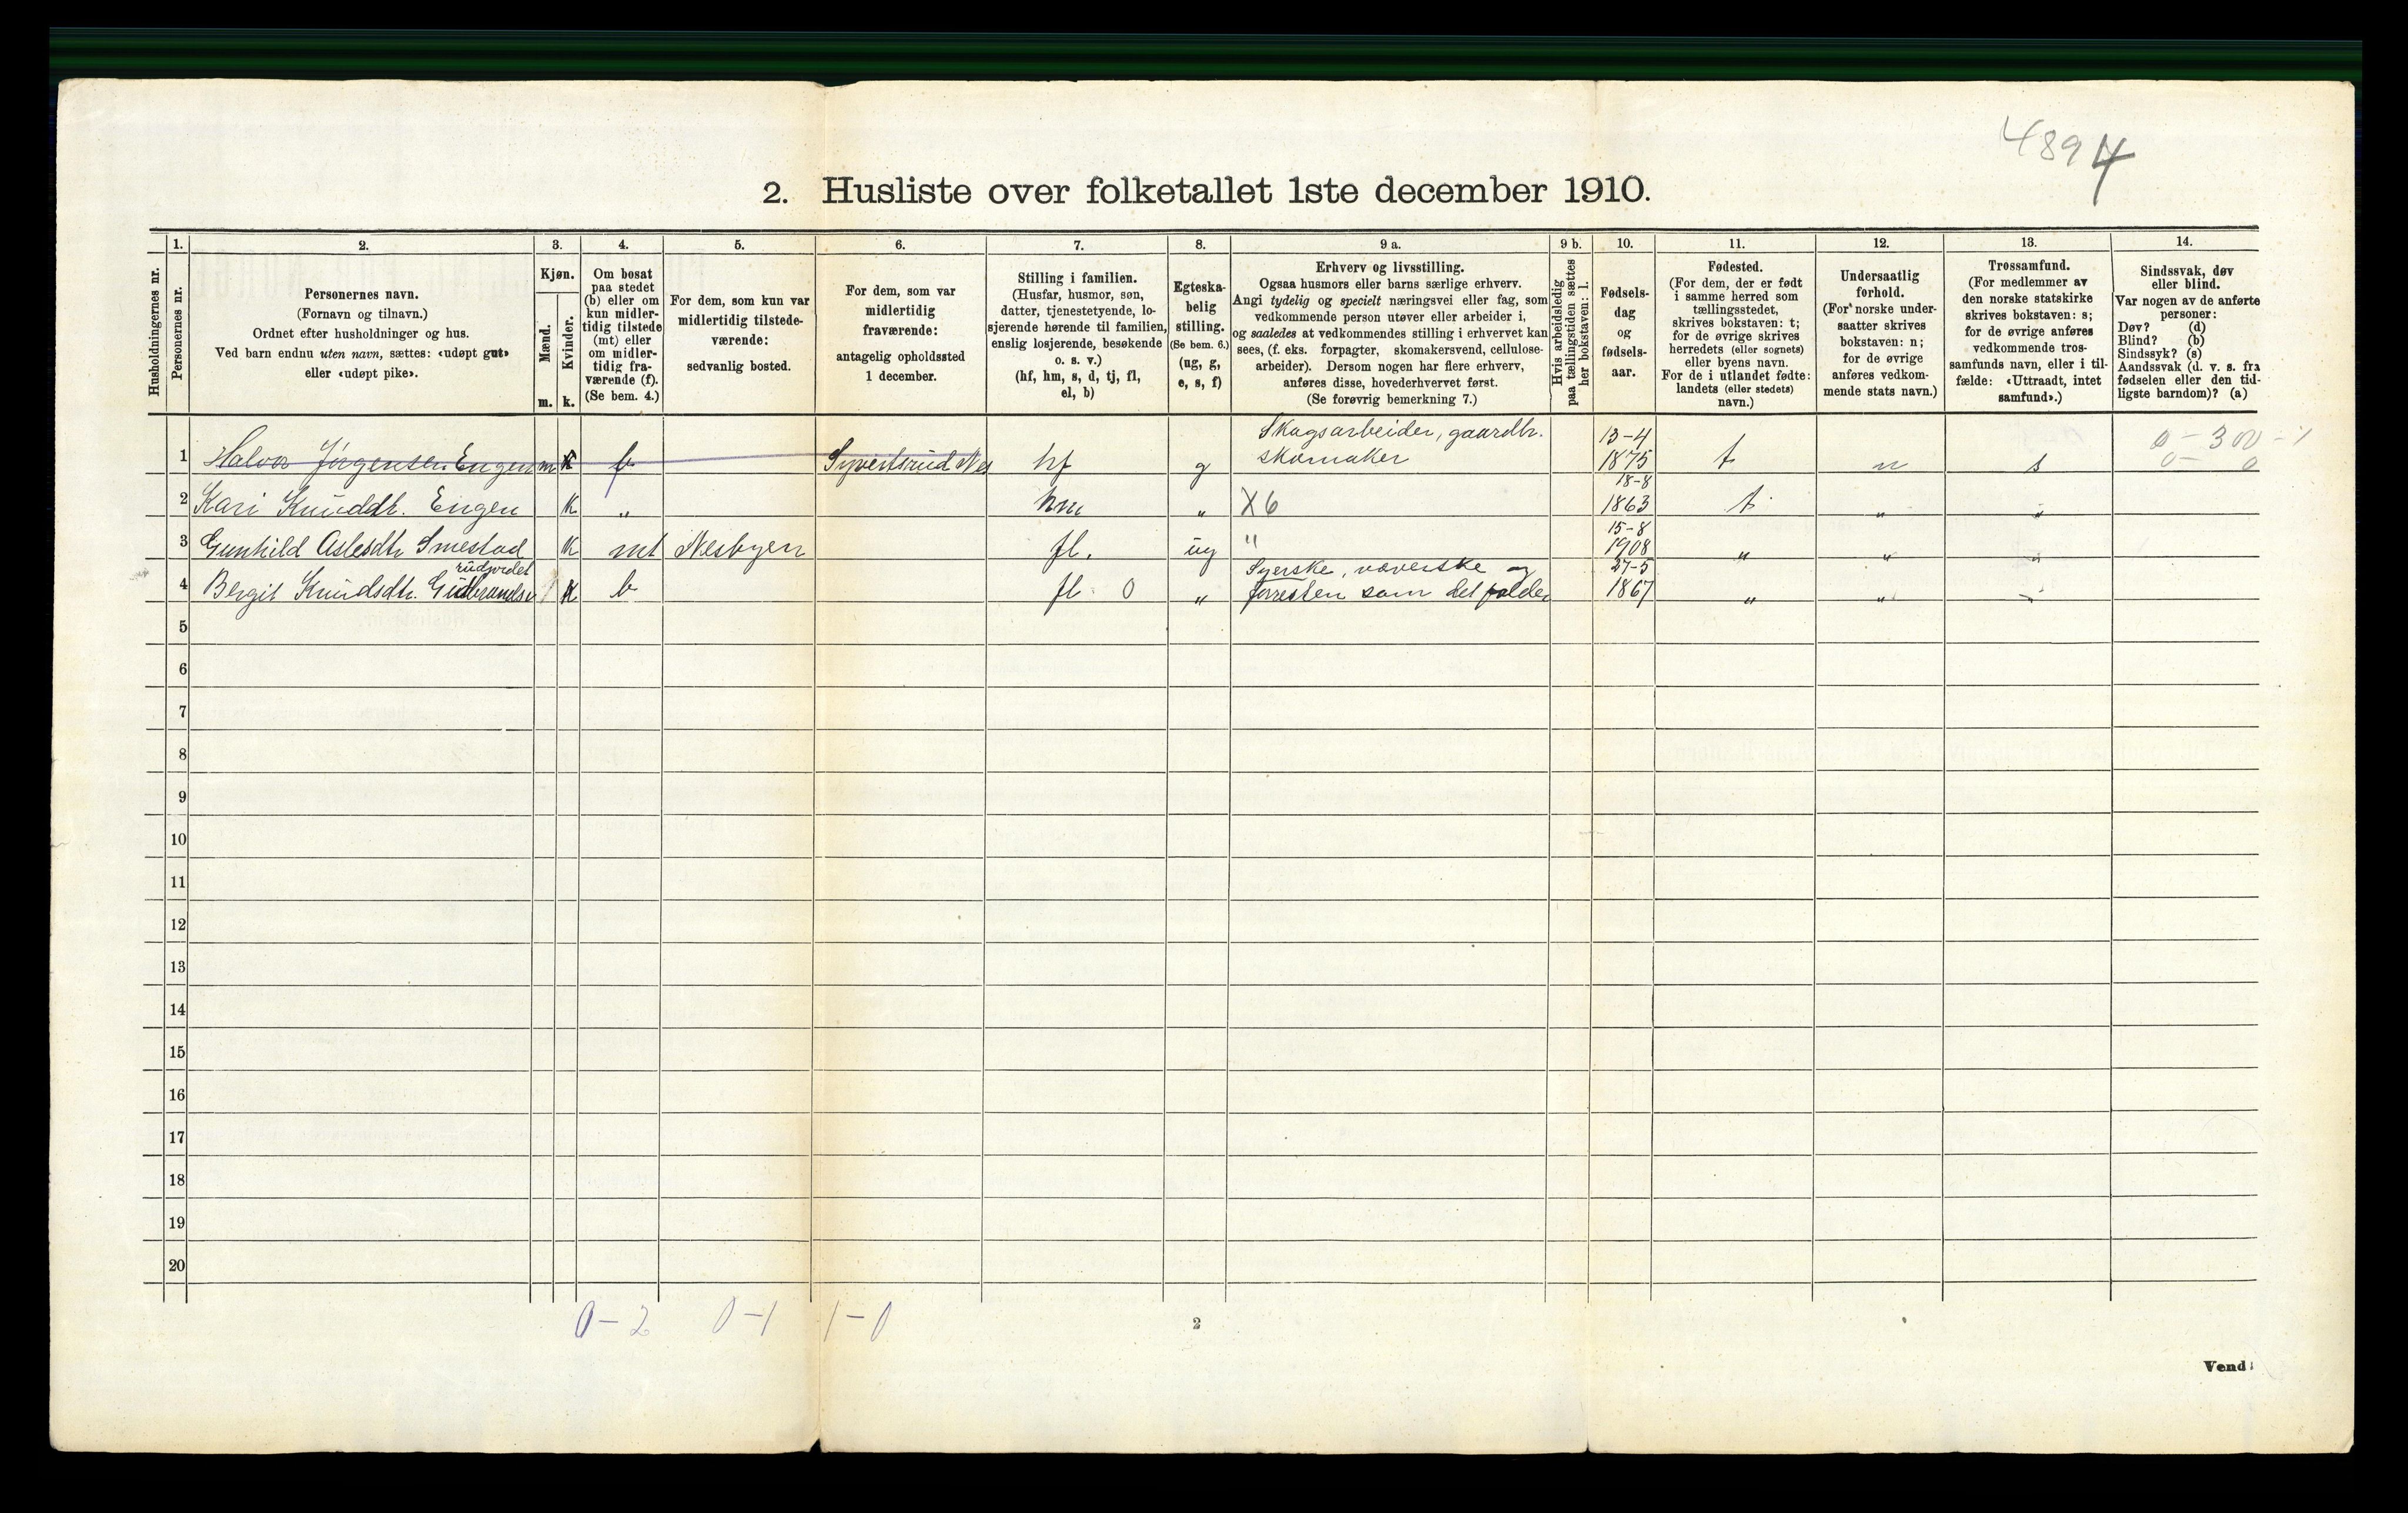 4894
2. Husliste over folketallet 1ste december 1910.
Husholdningernes nr.
1. Personernes nr.
2.
Personernes navn.
(Fornavn og tilnavn.)
Ordnet efter husholdninger og hus.
Ved barn endnu uten navn, sættes: «udøpt gut»
eller «udøpt pike».
3.
Kjøn.
Mænd.
Kvinder.
m. k.
4.
Om bosat
paa stedet
(b) eller om
kun midler-
tidig tilstede
(mt) eller
om midler-
tidig fra-
værende (f).
(Se bem. 4.)
5.
For dem, som kun var
midlertidig tilstede-
værende:
sedvanlig bosted.
6.
For dem, som var
midlertidig
fraværende:
antagelig opholdssted
1 december.
7.
Stilling i familien.
(Husfar, husmor, søn,
datter, tjenestetyende, lo-
sjerende hørende til familien,
enslig losjerende, besøkende
o. s. v.)
(hf, hm, s, d, tj, fl,
el, b)
8.
Egteska-
belig
stilling.
(Se bem. 6.)
(ug, g,
e, s, f)
9 a.
Erhverv og livsstilling.
Ogsaa husmors eller barns særlige erhverv.
Angi tydelig og specielt næringsvei eller fag, som
vedkommende person utøver eller arbeider i,
og saaledes at vedkommendes stilling i erhvervet kan
sees, (f. eks. forpagter, skomakersvend, cellulose-
arbeider). Dersom nogen har flere erhverv,
anføres disse, hovederhvervet først.
(Se forøvrig bemerkning 7.)
9 b.
Hvis arbeidsledig
paa tællingstiden sættes
her bokstaven: l.
10.
Fødsels-
dag
og
fødsels-
aar.
11.
Fødested.
(For dem, der er født
i samme herred som
tællingsstedet,
skrives bokstaven: t;
for de øvrige skrives
herredets (eller sognets)
eller byens navn.
For de i utlandet fødte:
landets (eller stedets)
navn.)
12.
Undersaatlig
forhold.
(For norske under-
saatter skrives
bokstaven: n;
for de øvrige
anføres vedkom-
mende stats navn.)
13.
Trossamfund.
(For medlemmer av
den norske statskirke
skrives bokstaven: s;
for de øvrige anføres
vedkommende tros-
samfunds navn, eller i til-
fælde: «Uttraadt, intet
samfund».)
14.
Sindssvak, døv
eller blind.
Var nogen av de anførte
personer:
Døv? (d)
Blind? (b)
Sindssyk? (s)
Aandssvak (d. v. s. fra
fødselen eller den tid-
ligste barndom)? (a)
Skogsarbeider, gaardbr. 13-4 0 - 300 - 1
1 Halvor Jørgensen Engen m k b Syvertsrud Nes hf g skomaker 1875 t n s 0 - 0
18-8
2 Kari Knudsdt. Engen k „ hm „ X6 1863 t „ „
15-8
3 Gunhild Aslesdtr Smestad k mt Nesbyen fl. ug " 1908 „ „ „
rudjordet Syerske, væverske og 27-5
4 Bergit Knudsdtr. Gudbrands k b fl 0 „ forresten som det falder 1867 „ „ „
5
6
7
8
9
10
11
12
13
14
15
16
17
18
19
20
0-2 0-1 1-0
2
Vend!